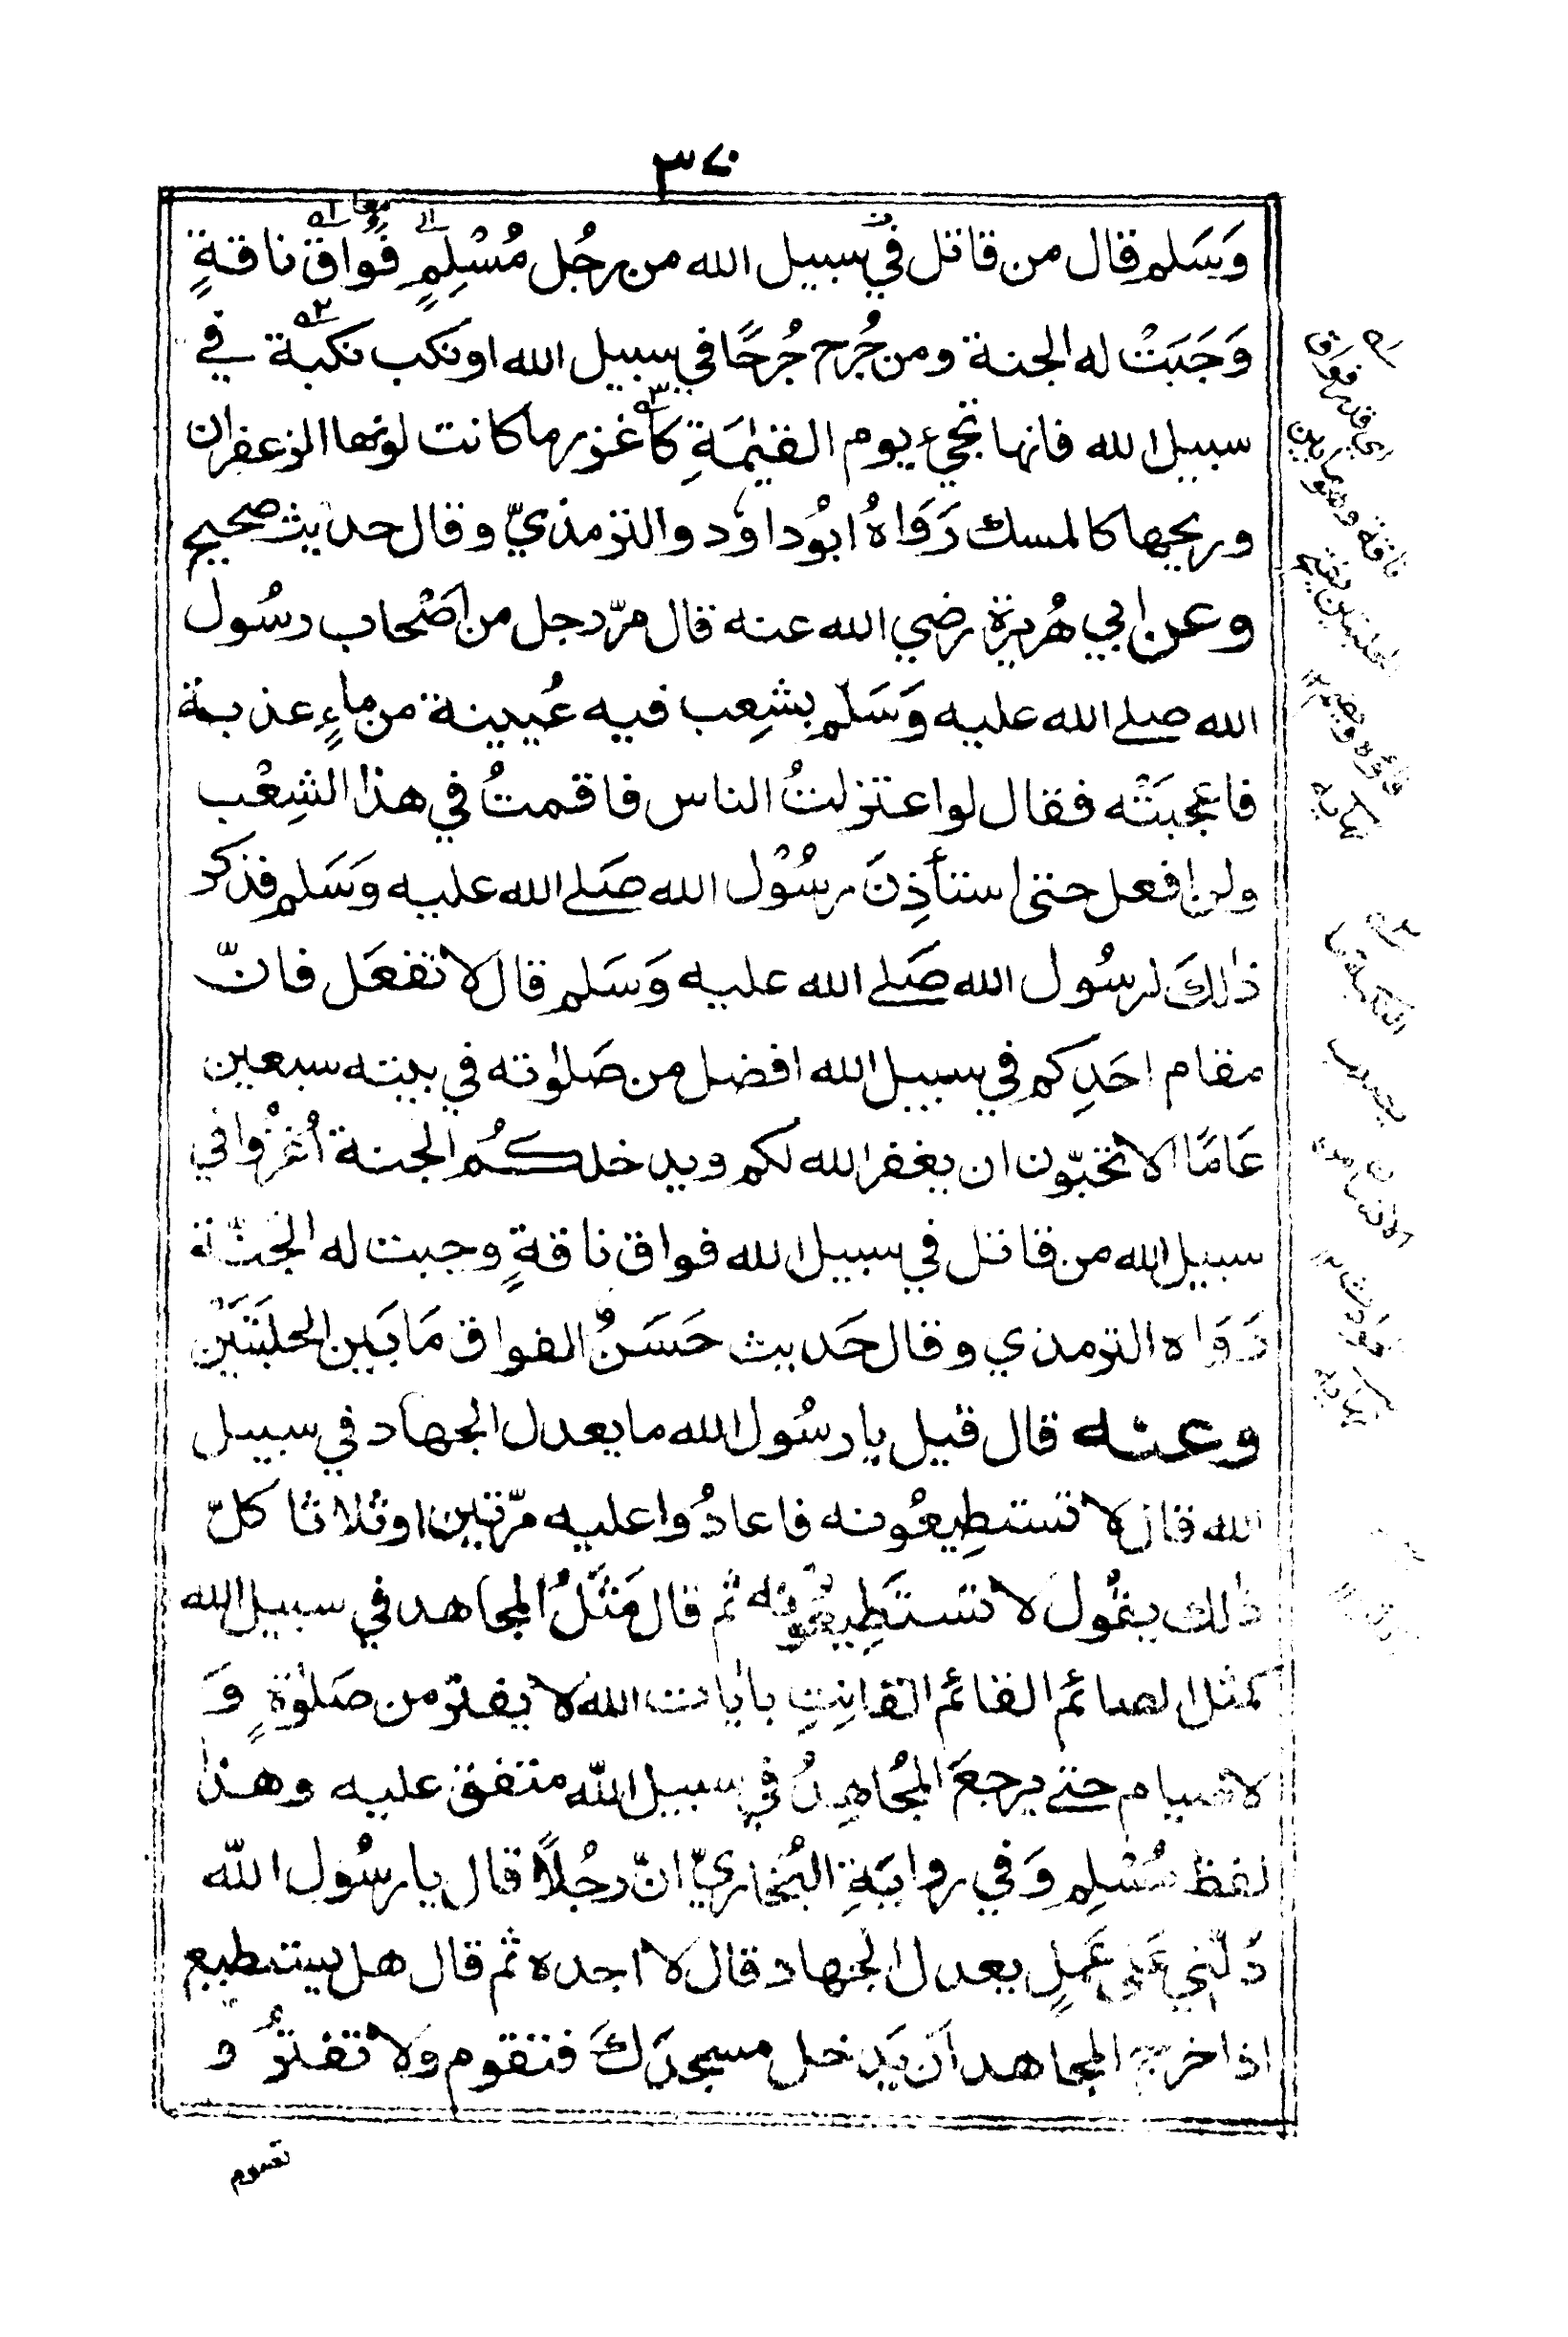 ٣٧٠
وَسَلم قال من قاتل في سبيل الله من رجُل مُسْلِمٍ فَوُاق ناقةٍ
وَجَبَتْ له الجنة ومن جُرح جُرحًا في سبيل الله او نكب نكبة في
سبيل الله فانها تجيء يوم القيٰمةِ كأغزر ما كانت لونها الزعفران
وريحها كالمسك رَوَاهُ ابُوداوٗد والترمذيّ وقال حديث صحيح
وعن ابي هُريرة رضي الله عنه قال مرّ رجل من اصْحاب رسُول
الله صلى الله عليه وَسَلم بشِعب فيه عُيينة من ماءٍ عذبة
فاعجبَتْه فقال لو اعتزلتُ الناس فاقمتُ في هذا الشِعْب
ولن افعل حتى استأذِنَ رسُوْل الله صَلى الله عليه وَسَلم فذكر
ذٰلكَ لرسُول الله صَلى الله عليه وَسَلم قال لا تفعَل فانّ
مقام احَدِكم في سبيل الله افضل من صَلوٰته في بيته سبعين
عَامًا الا تحبّون ان يغفر الله لكم ويدخلكُم الجنة اُغزُوا في
سبيل الله من قاتل في سبيل الله فواق ناقةٍ وجبت له الجنّة
رَوَاه الترمذي وقال حَديث حَسَنٌ الفواق مَا بَين الحلبَتَيْن
وعنه قال قيل يا رسُول الله ما يعدل الجهاد في سبيل
الله قال لا تستطِيعُونه فاعادُوا عليه مرّتين او ثلاثا كلّ
ذٰلك يقُول لا تستَطِيعُونه ثم قال مَثَلُ المجاهد في سبيل الله
كمثل الصائم القائم القانِتِ باٰيات الله لا يفتر من صَلوٰةٍ وَ
لا صيام حتى يرجعَ المُجاهِدُ في سبيل الله متفق عليه وهذا
لفظ مُسْلِم وَفي روايَةِ البُخاريّ انّ رجُلاً قال يا رسُول الله
دُلّني عَلى عَمَلٍ يعدل الجهاد قال لا اجده ثم قال هل يستطيع
اذا خرج المجاهد اَن يَدخل مسجدَكَ فتقوم ولا تفترُ وَ
تصوم
اي قدر فواق
ناقة وهو ما بين
الحلبتين بفتح
فاؤه وضم ١٢
نهاية
يصيب
الانسان من
الحوادث ١٢
نهاية